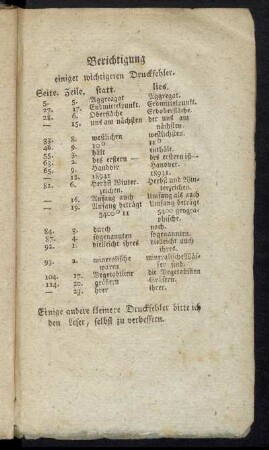 Berichtigung
einiger wichtigeren Druckfehler.
Seite. Zeile. statt. lies.
5. 5. Aggregat Aggregat.
27. 17. Erdmittelpunkt. Erdmittelpunkt.
28. 6. Oberfläche Erdoberfläche.
— 15. uns am nächsten der uns am
nächsten.
33. 8. westlichen westlichsten.
48. 9. 10° 11°
55. 3. hält enthält.
63. 2. des erstern — des erstern ist—
65. 9. Handver Handver.
— 12. 1894t 18941.
81. 6. Herbst Winter Herbst und Win-
zeichen. terzeichen.
— 16. Anfang auch Anfang als auch
— 19. Anfang beträgt Anfang beträgt
5400° 11 5400 geogra-
phische.
84. 3. durch nach.
87. 4. sogenanten sogenannten.
92. 1. vielleicht ihres vielleicht auch
ihres.
93. 2. mineralische mineralische Wäs-
waren sser sind.
104. 17. Vegetabilien die Vegetabilien
114. 20. größern Größern.
— 23. ihrer ihrer.
Einige andere kleinere Druckfehler bitte ich
den Leser, selbst zu verbessern.